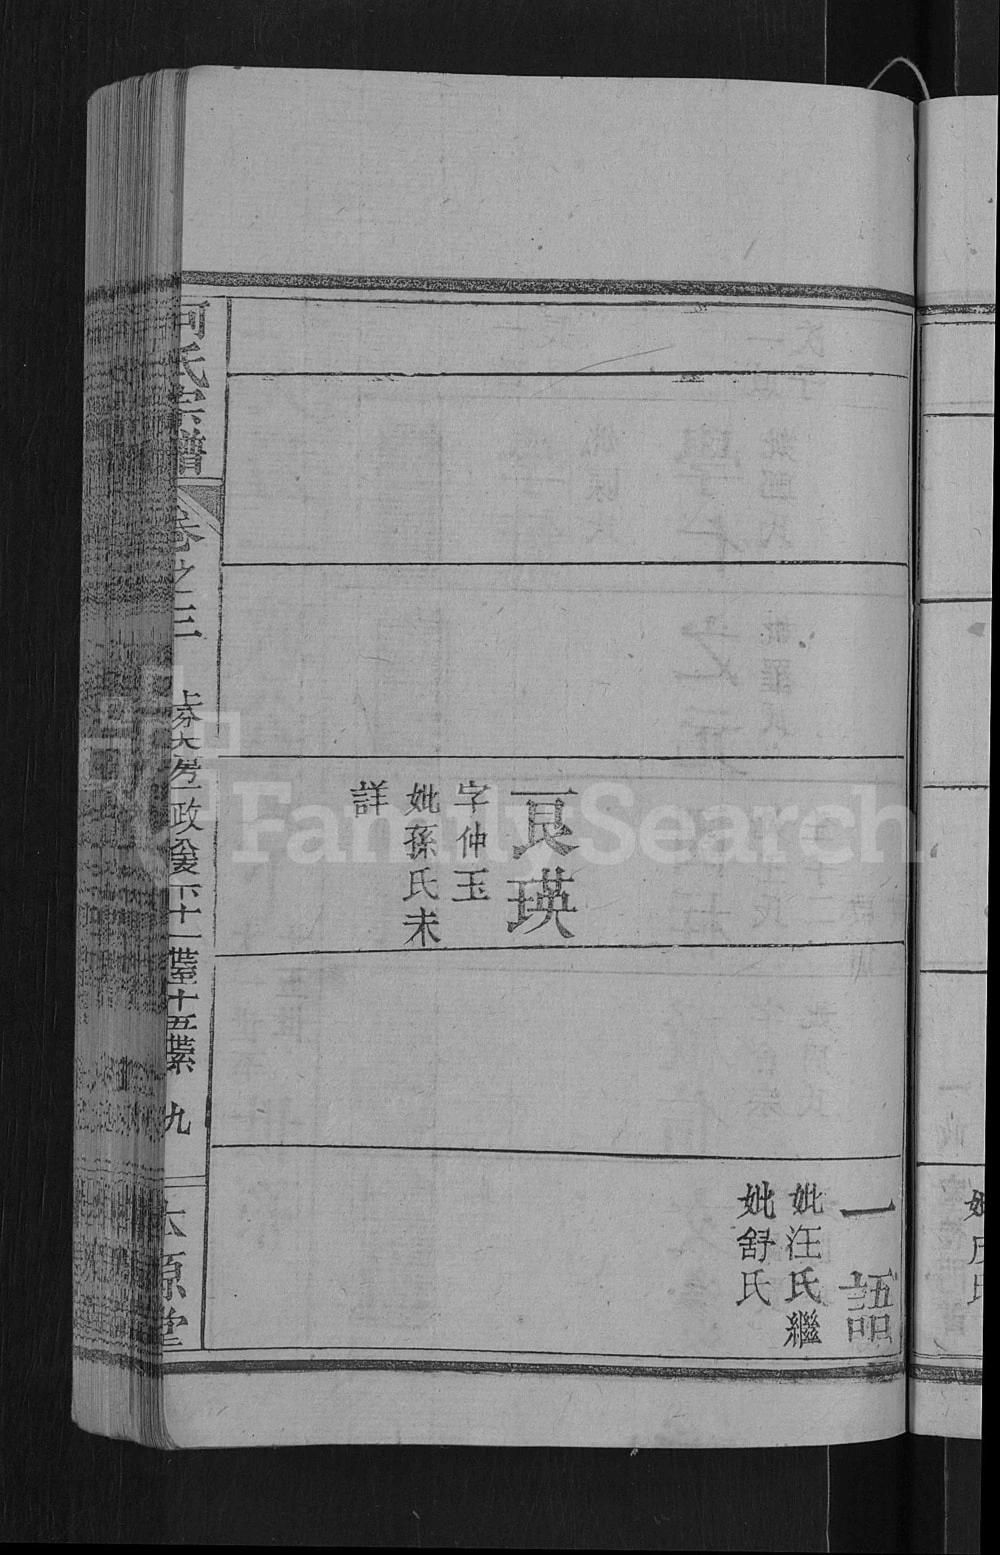 一語
妣汪氏繼
妣舒氏
良瑛
字仲玉
妣孫氏未
詳
何氏宗譜
卷之三
政公下十一世至十五世系
九
太原堂
FamilySearch